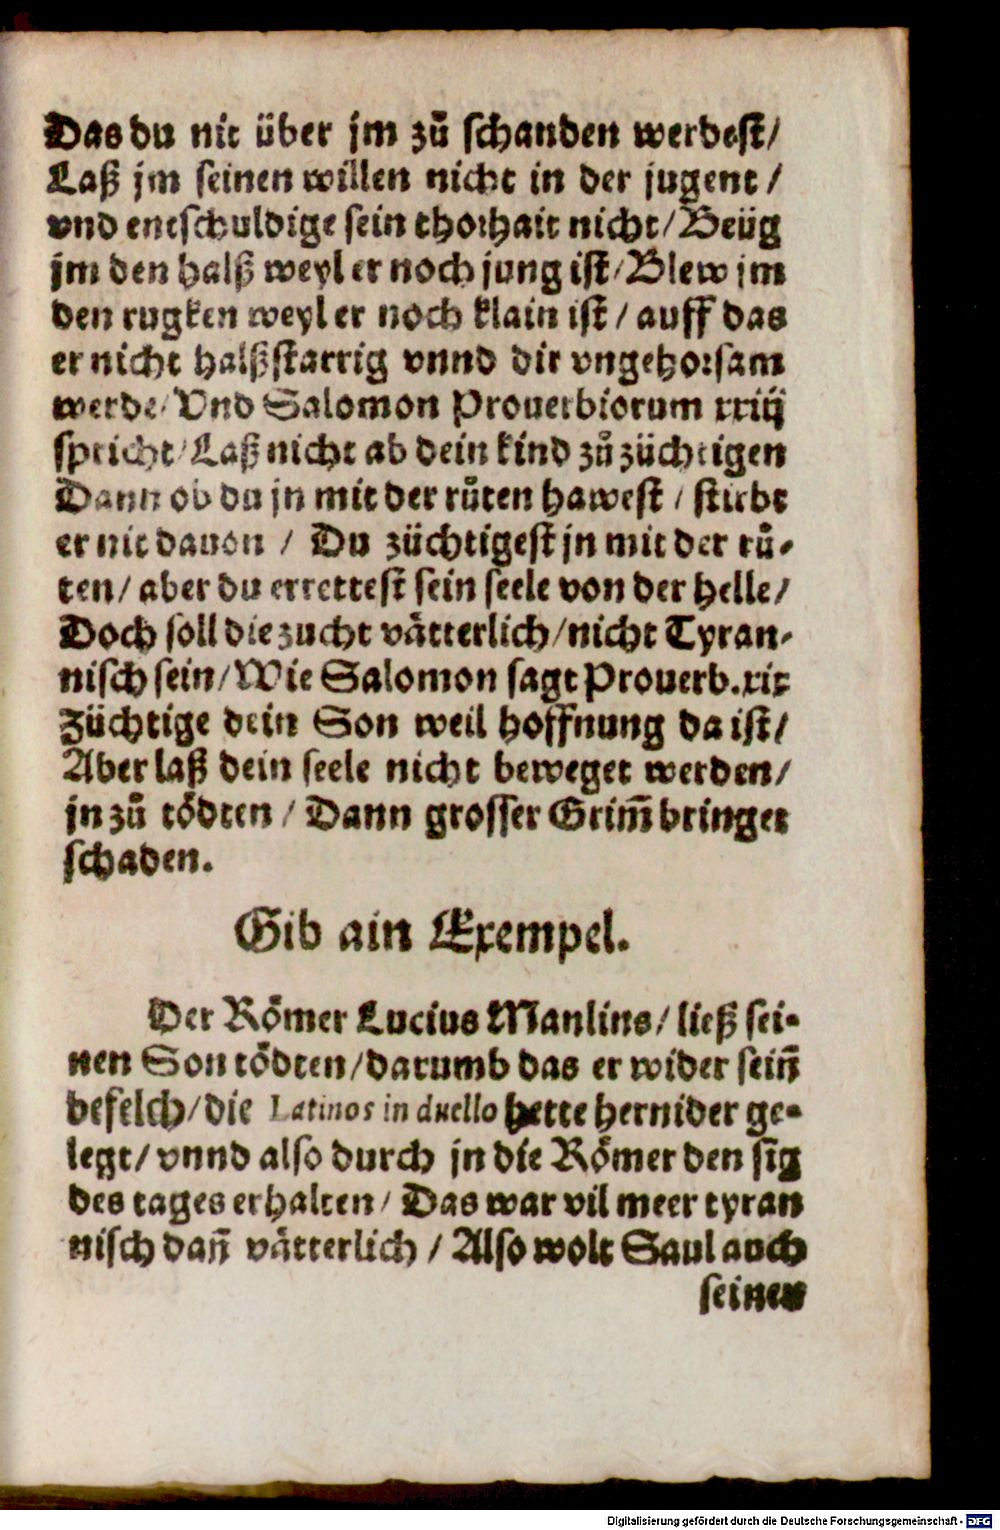 Das du nit über jm zů schanden werdest/
Laß jm seinen willen nicht in der jugent /
vnd entschuldige sein thorhait nicht/ Beüg
jm den halß weyl er noch jung ist/ Blew jm
den rugken weyl er noch klain ist / auff das
er nicht halßstarrig vnnd dir vngehorsam
werde/ Vnd Salomon Prouerbiorum xxiij
spricht/ Laß nicht ab dein kind zů züchtigen
Dann ob du jn mit der růten hawest / stirbt
er nit dauon / Du züchtigest jn mit der rů-
ten/ aber du errettest sein seele von der helle/
Doch soll die zucht vätterlich/nicht Tyran-
nisch sein/ Wie Salomon sagt Prouerb.xix
Züchtige dein Son weil hoffnung da ist/
Aber laß dein seele nicht beweget werden/
jn zů tödten / Dann grosser Grim̃ bringet
schaden.
Gib ain Exempel.
Der Römer Lucius Manlius/ ließ sei-
nen Son tödten/darumb das er wider sein̄
befelch/die Latinos in duello hette hernider ge-
legt/ vnnd also durch jn die Römer den sig
des tages erhalten/ Das war vil meer tyran
nisch dan̄ vätterlich / Also wolt Saul auch
seinen
Digitalisierung gefördert durch die Deutsche Forschungsgemeinschaft - DFG